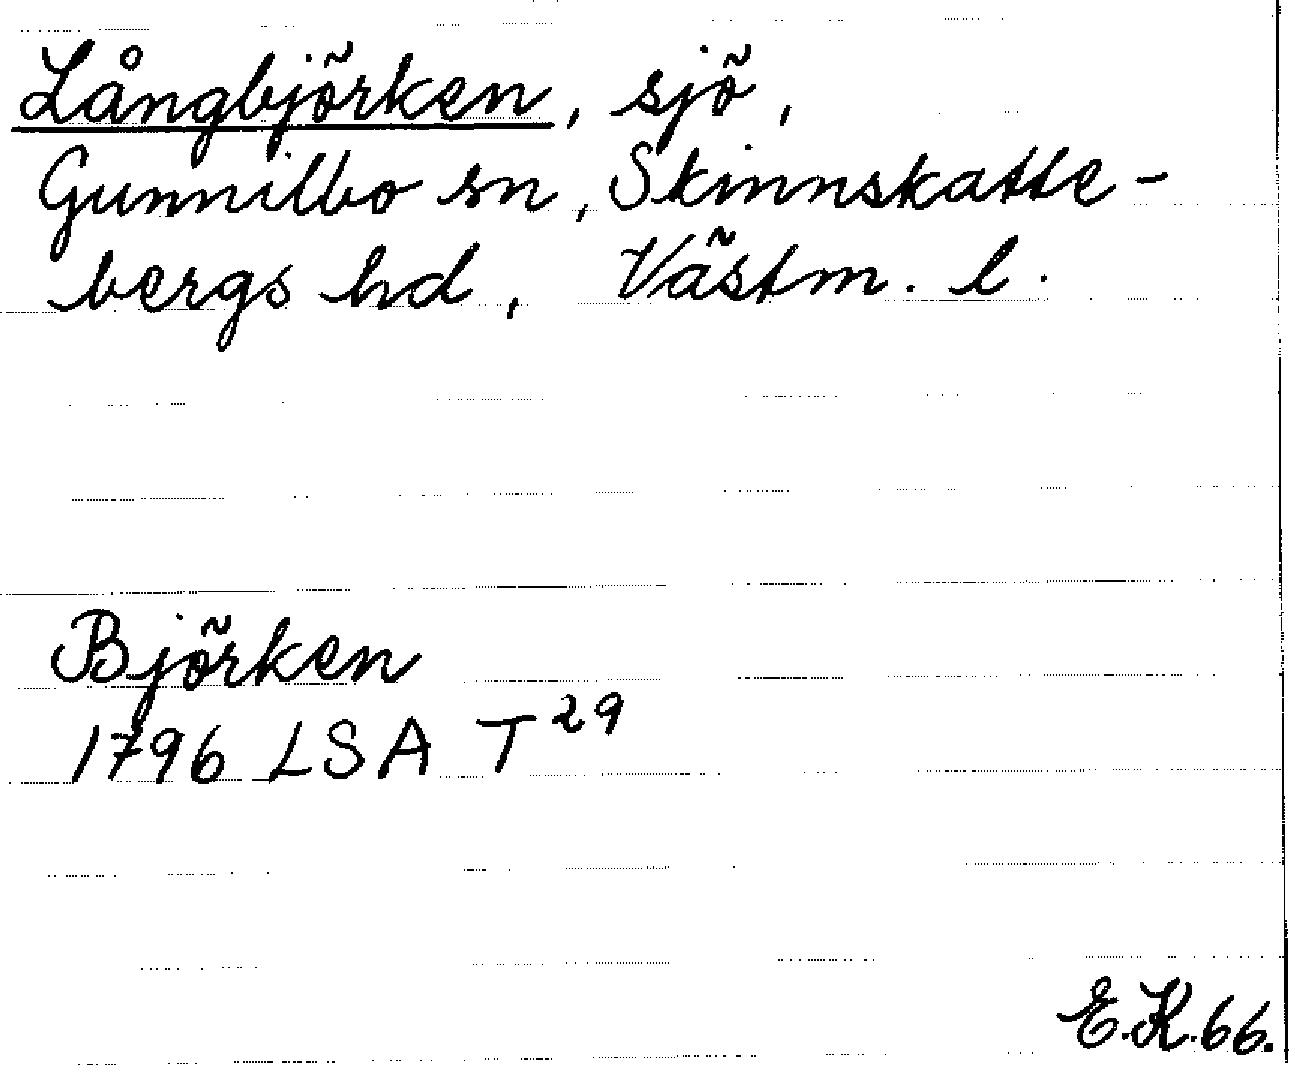 Långbjörken, sjö,
Gunnilbo sn, Skinnskatte-
bergs hd, Västm. l.
Björken
1796 LSA T²⁹
E.K.66.